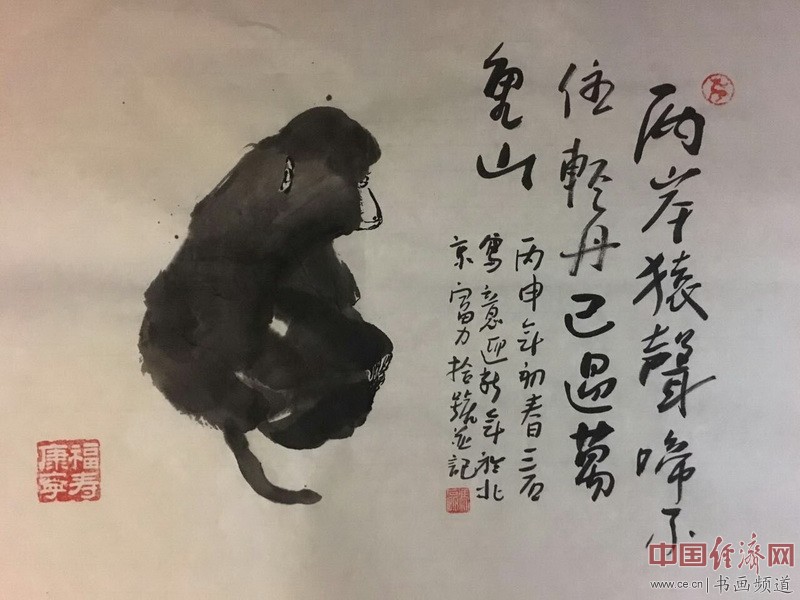 两岸猿聲啼不
住輕舟已過萬
重山
丙申年初春三石
寫意迎新年於北
京富力拾號並記
福寿
康寧
中国经济网
www.ce.cn|书画频道